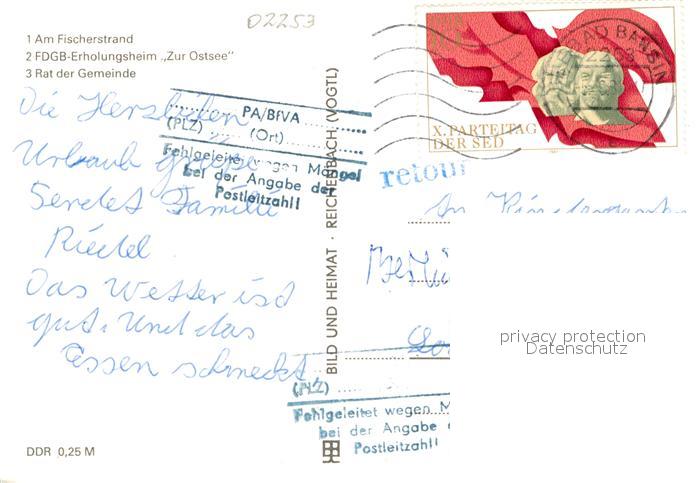 02253
1 Am Fischerstrand
2 FDGB-Erholungsheim „Zur Ostsee"
3 Rat der Gemeinde
Die Herzlichen
Urlaub grüße
Sendet Familie
Riedel
Das Wetter isd
gut. Und das
Essen schmeckt
PA/BfVA
(PLZ) (Ort)
Fehlgeleitet wegen Mangel
bei der Angabe der
Postleitzahl!
BILD UND HEIMAT · REICHENBACH (VOGTL)
DDR
X. PARTEITAG
DER SED
BAD BANSIN
retour
An Kindergarten
Berlin
privacy protection
Datenschutz
(PLZ)
Fehlgeleitet wegen M
bei der Angabe
Postleitzahl!
DDR 0,25 M